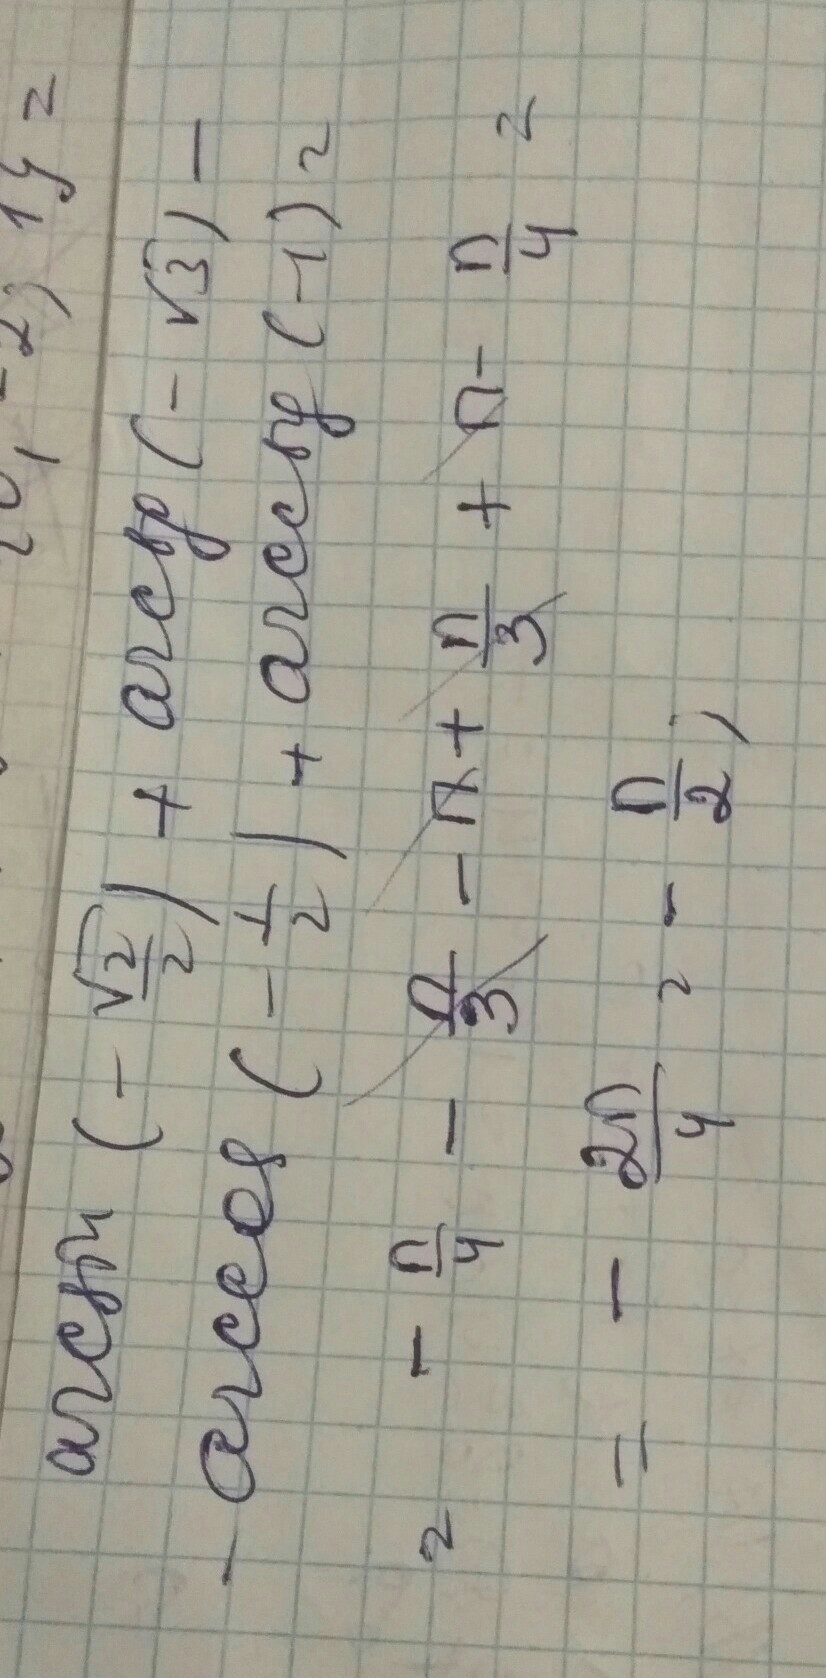 arcsin (- √2/2) + arctg (- √3) -
- arccos (- 1/2) + arcctg (-1) =
= - π/4 - π/3 - π + π/3 + π - π/4 =
= - 2π/4 = - π/2;